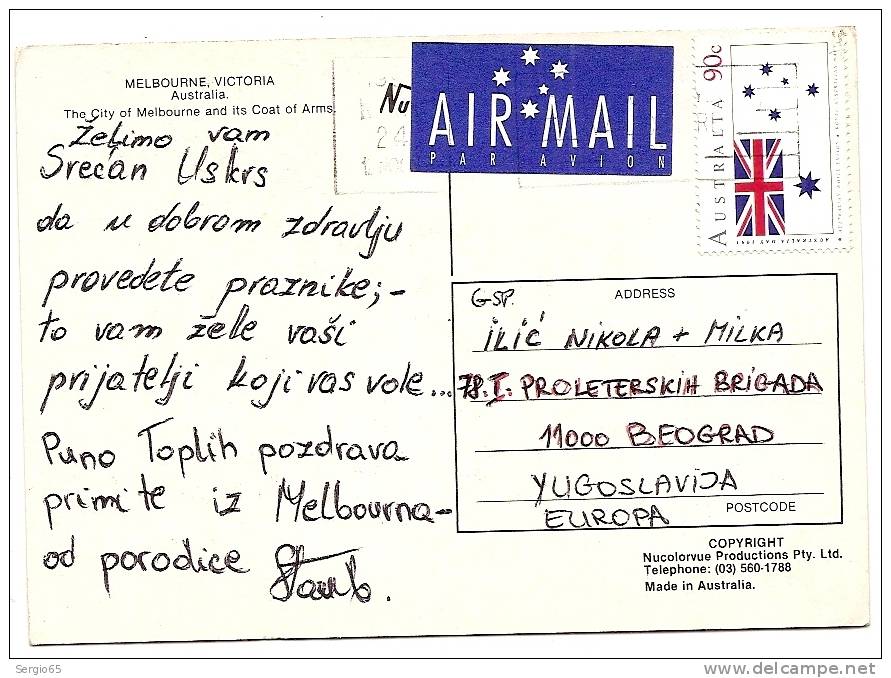 MELBOURNE, VICTORIA
Australia.
The City of Melbourne and its Coat of Arms.
Želimo vam
Srećan Uskrs
da u dobrom zdravlju
provedete praznike; -
to vam žele vaši
prijatelji koji vas vole...
Puno Toplih pozdrava
primite iz Melbourna -
od porodice
Nu
24
AIR MAIL
PAR AVION
AUSTRALIA 90c
AUSTRALIA DAY 1991
GSP.
ADDRESS
ILIĆ NIKOLA + MILKA
78. I. PROLETERSKIH BRIGADA
11000 BEOGRAD
YUGOSLAVIJA
EUROPA
POSTCODE
COPYRIGHT
Nucolorvue Productions Pty. Ltd.
Telephone: (03) 560-1788
Made in Australia.
Sergio65
delcampe.net